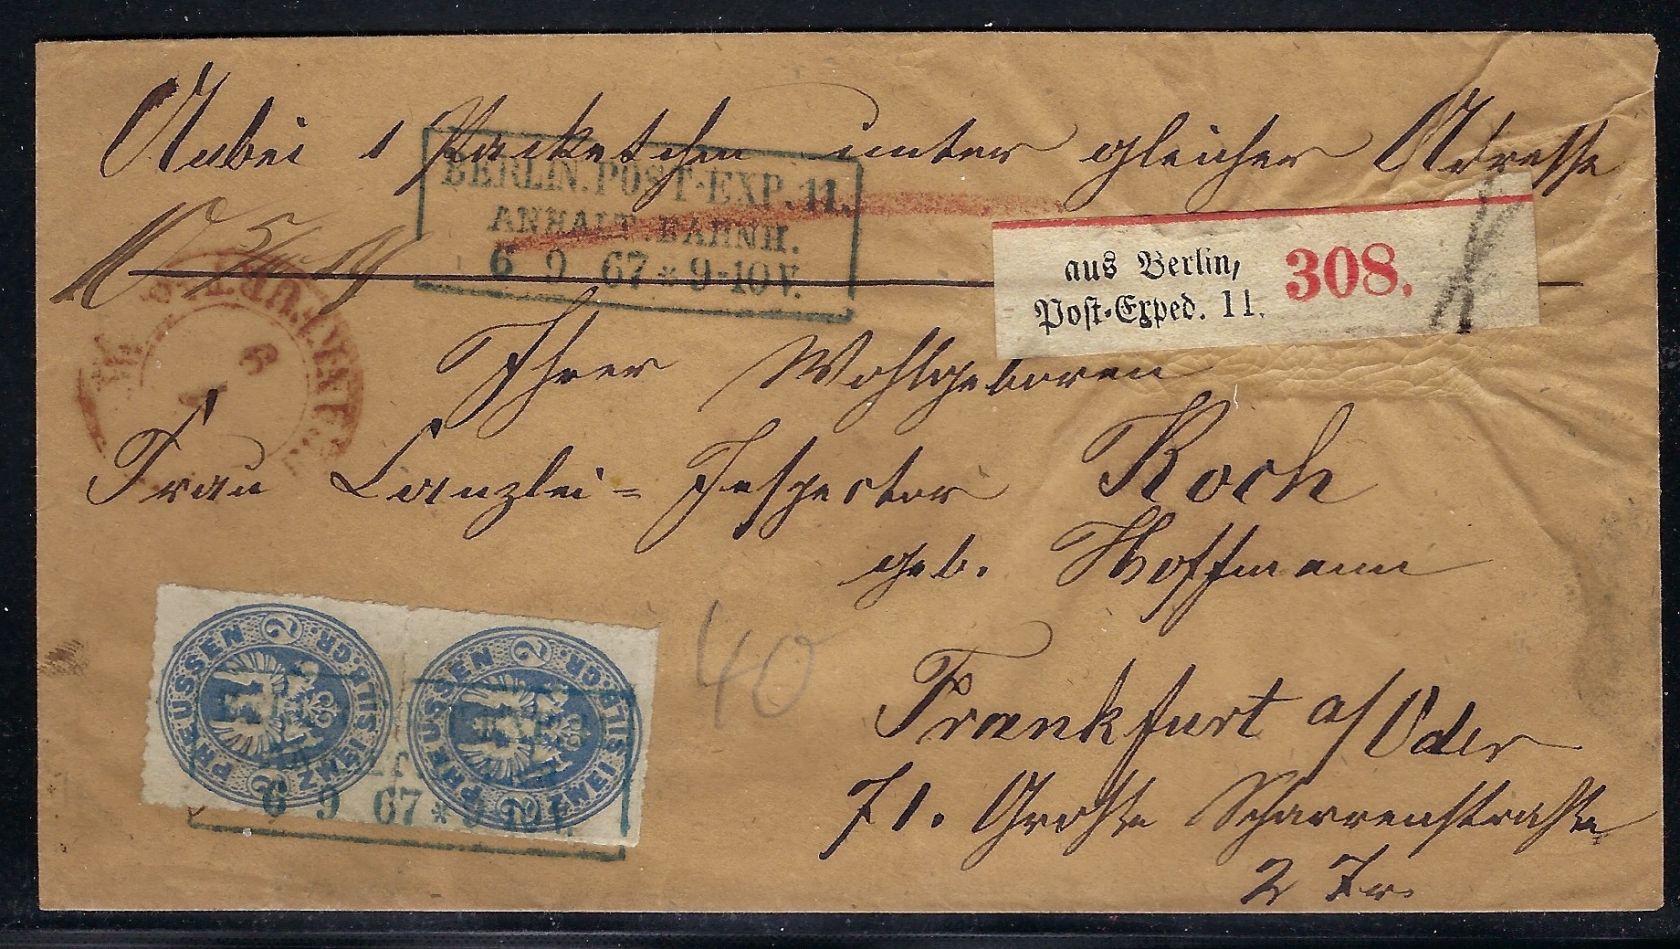 Anbei 1 Packetchen unter gleicher Adresse
BERLIN.POST-EXP.11.
ANHALT.BAHNH.
6 9 67 * 9-10V.
aus Berlin,
Post-Exped. 11. 308.
Ihrer Wohlgeboren
Frau Canzlei-Inspector Koch
geb. Hoffmann
PREUSSEN 2 SILB.GR. 2 ZWEI
PREUSSEN 2 SILB.GR. 2 ZWEI
6 9 67 * 9-10V.
40
Frankfurt a/Oder
71. Große Scharrenstraße
2 Tr.